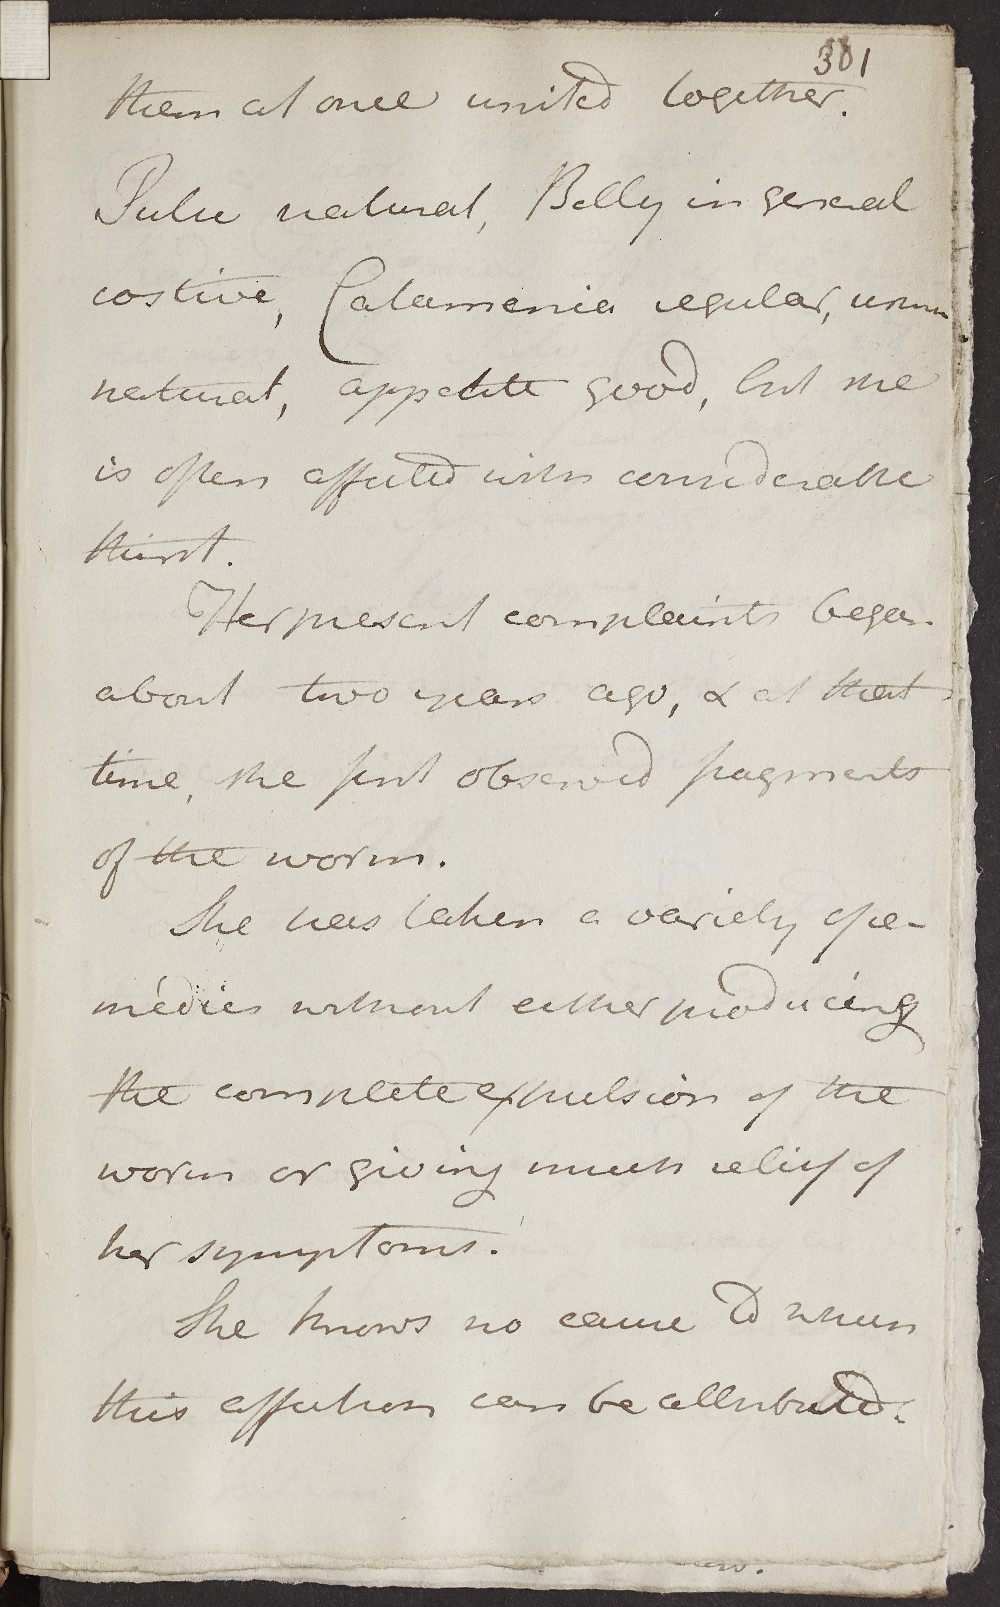 381
them at once united together.
Pulse natural, Belly in general
costive, Catamenia regular, urine
natural, appetite good, but she
is often affected with considerable
thirst.
Her present complaints began
about two years ago, & at that
time, she first observed fragments
of the worm.
She has taken a variety of re-
medies without either producing
the complete expulsion of the
worm or giving much relief of
her symptoms.
She knows no cause to which
this affection can be attributed.